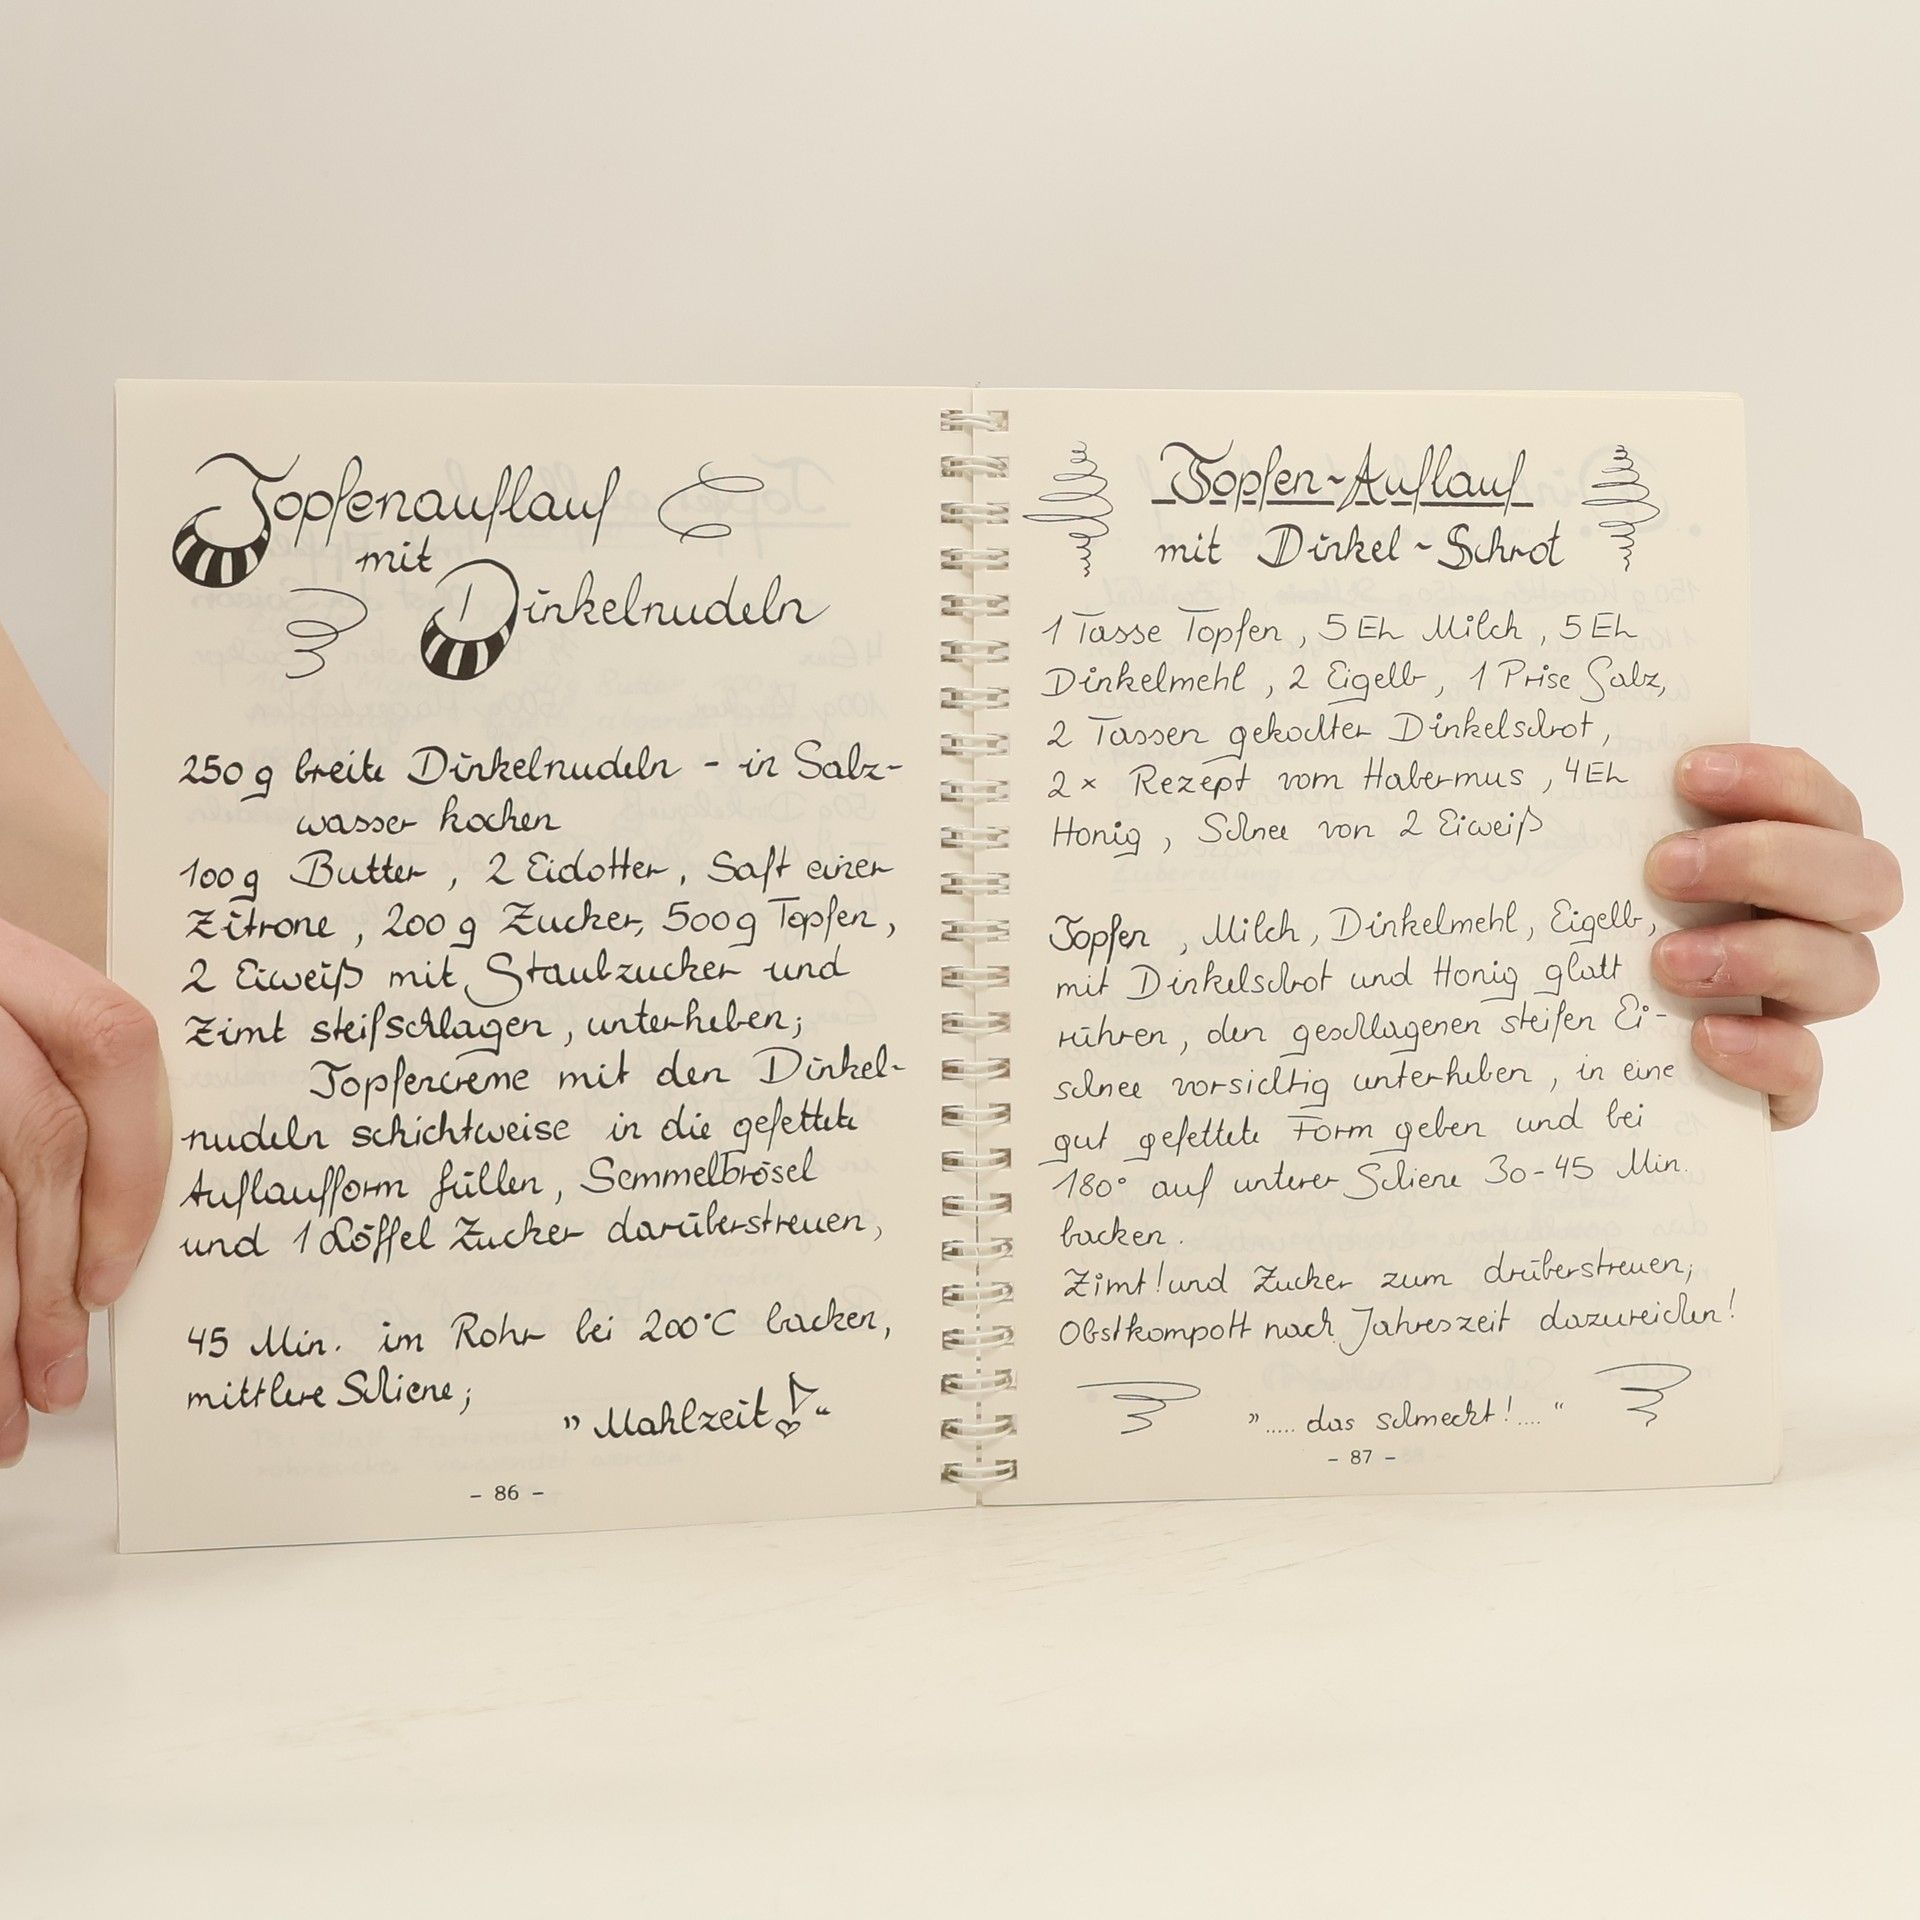 Topfenauflauf
mit
Dinkelnudeln
250 g breite Dinkelnudeln - in Salz-
wasser kochen
100 g Butter, 2 Eidotter, Saft einer
Zitrone, 200 g Zucker, 500 g Topfen,
2 Eiweiß mit Staubzucker und
Zimt steifschlagen, unterheben;
Topfencreme mit den Dinkel-
nudeln schichtweise in die gefettete
Auflaufform füllen, Semmelbrösel
und 1 Löffel Zucker darüberstreuen,
45 Min. im Rohr bei 200°C backen,
mittlere Schiene;
„Mahlzeit!“
- 86 -
Topfen-Auflauf
mit Dinkel-Schrot
1 Tasse Topfen, 5 EL Milch, 5 EL
Dinkelmehl, 2 Eigelb, 1 Prise Salz,
2 Tassen gekochter Dinkelschrot,
2 x Rezept vom Habermus, 4 EL
Honig, Schnee von 2 Eiweiß
Topfen, Milch, Dinkelmehl, Eigelb,
mit Dinkelschrot und Honig glatt
rühren, den geschlagenen steifen Ei-
schnee vorsichtig unterheben, in eine
gut gefettete Form geben und bei
180° auf unterer Schiene 30-45 Min.
backen.
Zimt! und Zucker zum drüberstreuen;
Obstkompott nach Jahreszeit dazureichen!
„..... das schmeckt!....“
- 87 -